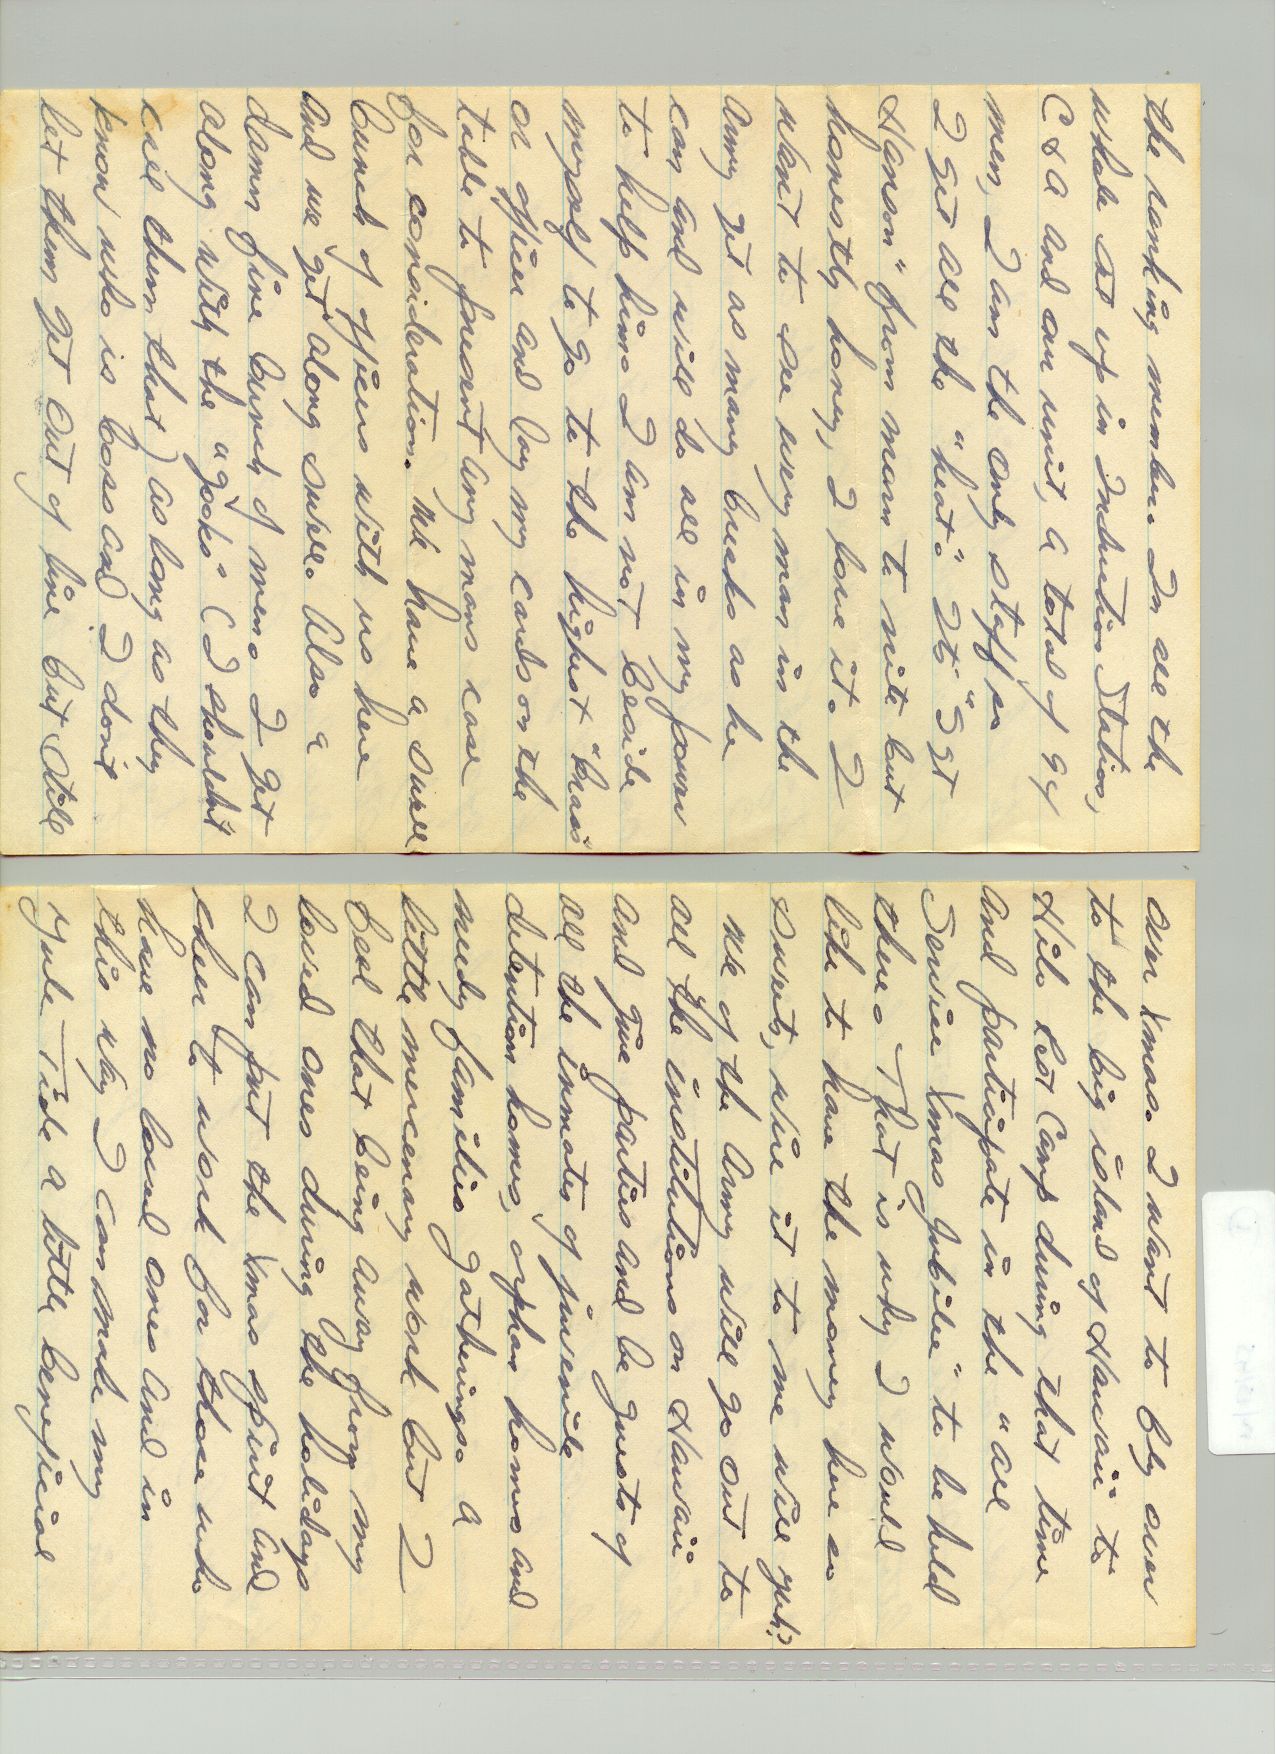 the ranking member. In all the
whole set up in Induction Station,
C & A and our unit, a total of 94
men, I am the only staff so
I get all the "heat". It's "Sgt
Hanson" from morn to nite but
honestly honey, I love it. I
want to see every man in the
Army get as many breaks as he
can and will do all in my power
to help him. I am not beside
myself to go to the highest "brass"
or officer and lay my cards on the
table to present any mans case
for consideration. We have a swell
bunch of officers with us here
and we get along swell. Also a
damn fine bunch of men. I get
along with the "gooks" (I shouldn't
call them that) as long as they
know who is boss and I don't
let them get out of line but still
over Xmas. I want to fly over
to the big island of Hawaii to
Hilo Rest Camp during that time
and participate in the "all
Service Xmas Jubilee" to be held
there. That is why I would
like to have the money here so
sweets, wire it to me will yuh?
We of the Army will go out to
all the institutions on Hawaii
and give parties and be guests of
all the inmates of juvenile
detention homes, orphan homes and
needy families gatherings. a
little mercenary work but I
feel that being away from my
loved ones during the holidays
I can put the Xmas spirit and
cheer to work for those who
have no loved ones and in
this way I can make my
Yule-Tide a little beneficial